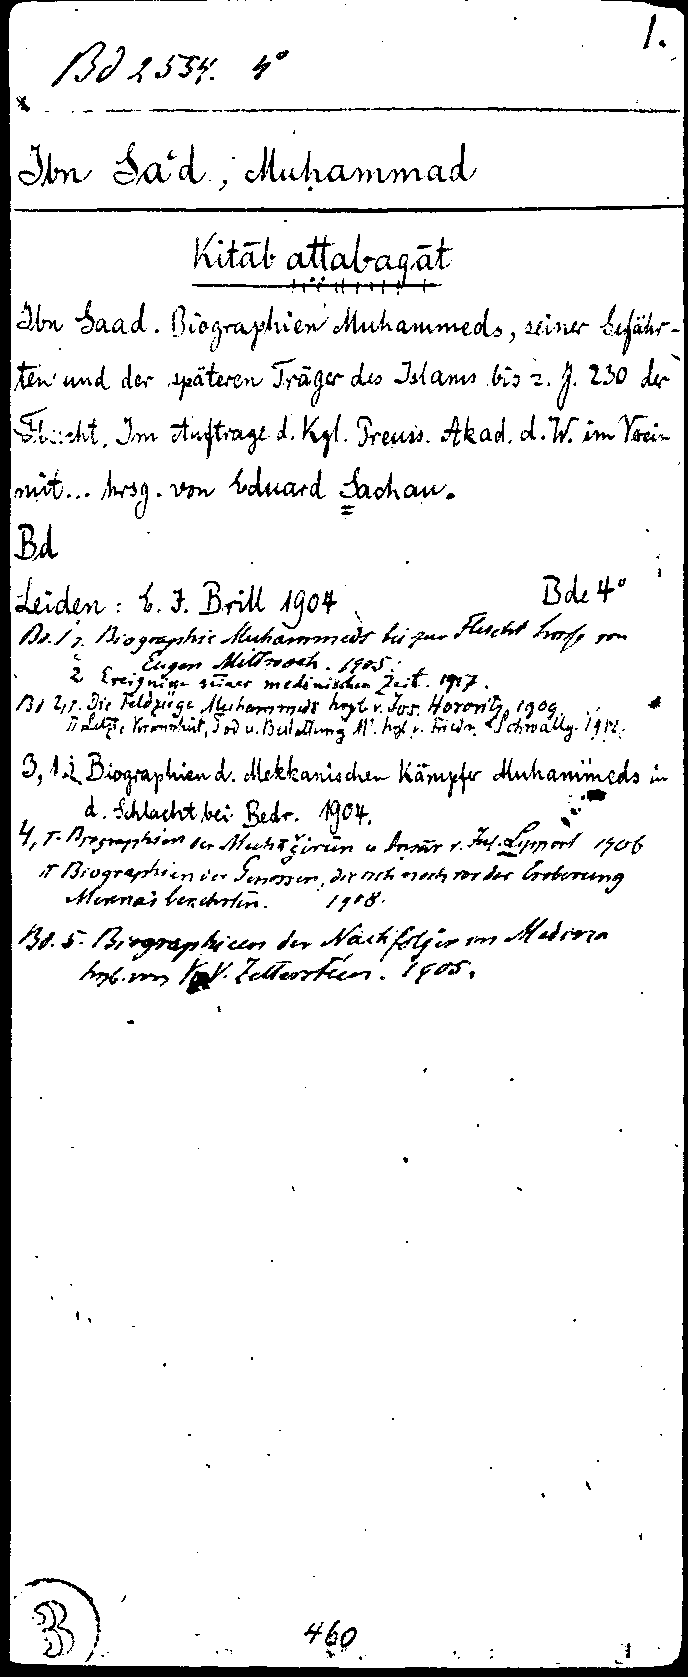 1.
Bd 2554. 4°
Ibn Sa'd, Muḥammad
Kitāb aṭṭabaqāt
Ibn Saad. Biographien Muhammeds, seiner Gefähr-
ten und der späteren Träger des Islams bis z. J. 230 der
Flucht. Im Auftrage d. Kgl. Preuss. Akad. d. W. im Verein
mit... hrsg. von Eduard Sachau.
Bd
Leiden: E. J. Brill 1904 Bde 4°
Bd. 1, 1. Biographie Muhammeds bis zur Flucht hrsg von
Eugen Mittwoch. 1905.
2 Ereignisse seiner medinischen Zeit. 1917.
Bd 2, I. Die Feldzüge Muhammeds hrgb v. Jos. Horovitz 1909
II Letzte Krankheit, Tod u. Bestattung M's hgb v. Friedr. Schwally. 1912.
3, 1.2 Biographien d. Mekkanischen Kämpfer Muhammeds in
d. Schlacht bei Bedr. 1904.
4, I. Biographien der Muhāǧirūn u Anṣār v. Jul. Lippert 1906
II Biographien der Genossen, die sich noch vor der Eroberung
Mekkas bekehrten. 1908.
Bd. 5. Biographieen der Nachfolger in Medina
hrgb. von K. V. Zetterstéen. 1905.
3
460